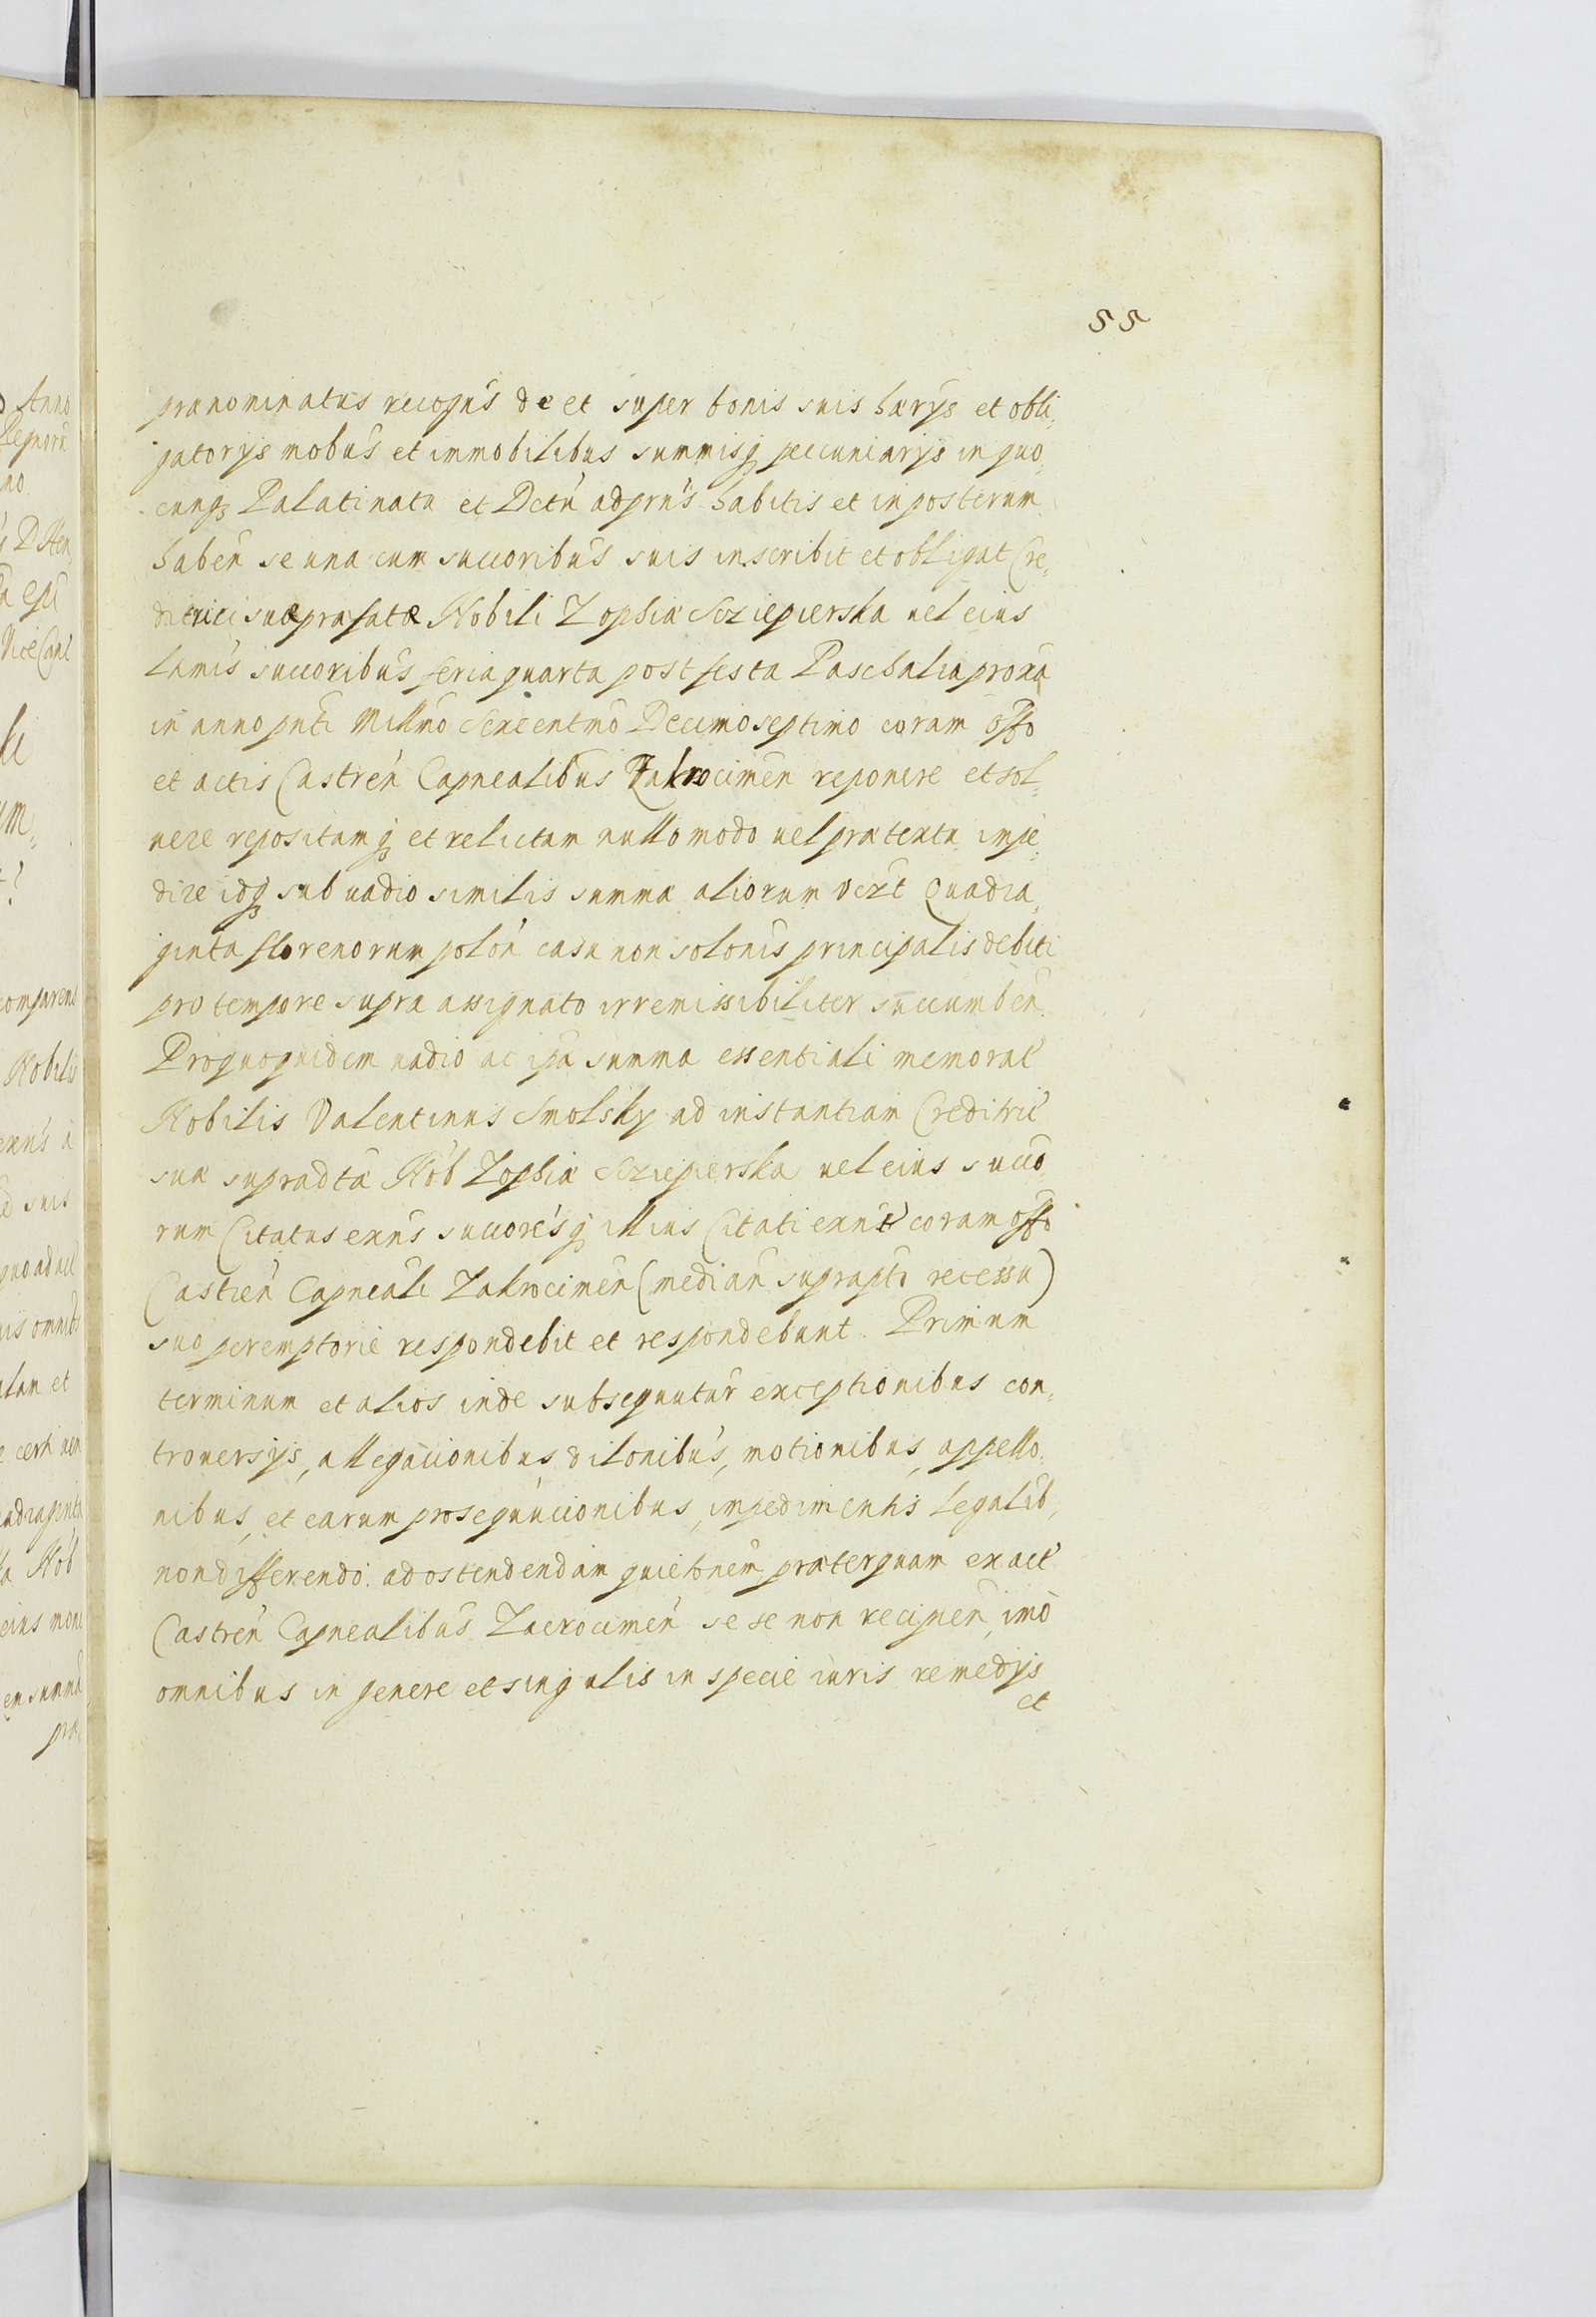 55
prænominatus recogn̄s de et super bonis suis hærȳs et obli,
gatorȳs mobūs et immobilibus summisq pecuniarȳs in quo,
cunq Palatinatu et Dctū ad prn̄s habitis et in posterum
habeń se una cum succoribūs suis inscribit et obligat Cre,
ditrici suæ præfatæ Nobili Zophiæ Scziepierska uel eius
ltmis succoribūs feria quarta post festa Paschalia proxā
in anno pn̄ti Millm̄o Sexcentm̄o Decimo septimo coram off̄o
et actis Castreń Capnealibūs Zakrocimeń reponere et sol,
uere repositamq et relictam nullo modo uel prætextu impe,
dire idq sub uadio similis summæ aliorum vero Quadra,
ginta florenorum poloń casu non solonis principalis debiti
pro tempore supra assignato irremissibiliter succumbeń.
Pro quo quidem uadio ac ip̄a summa essentiali memorat
Nobilis Valentinus Smolsky ad instantiam Creditric
suæ supradtæ Nob Zophiæ Scziepierska uel eius succo,
rum Citatus exn̄s succoresq illius Citati exn̄t coram off̄o
Castreń Capneali Zakrocimeń (median suprapto recessu)
suo peremptorie respondebit et respondebunt. Primum
terminum et alios inde subsequutur exceptionibus con,
trouersijs, allegacionibus dilonibūs, motionibus, appello,
nibus, et earum prosequucionibus, impedimentis legalib,
non differendo. ad ostendendam quietōnem præterquam ex act
Castreń Capnealibūs Zacrocimeń se se non recipień, imo
omnibus in genere et singulis in specie iuris remedijs
et